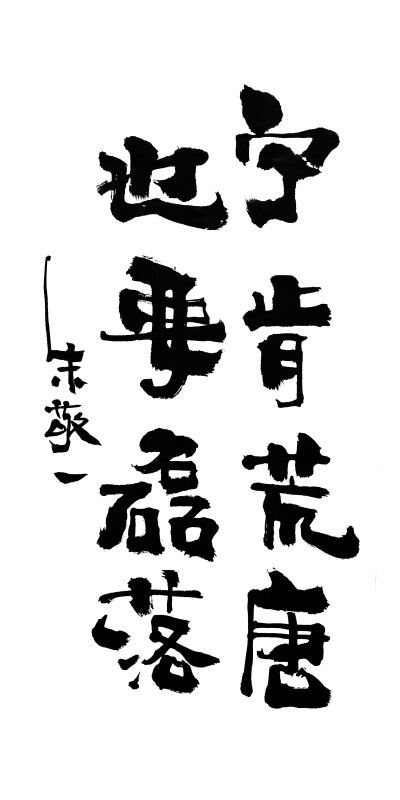 宁肯荒唐
也要磊落
朱敬一